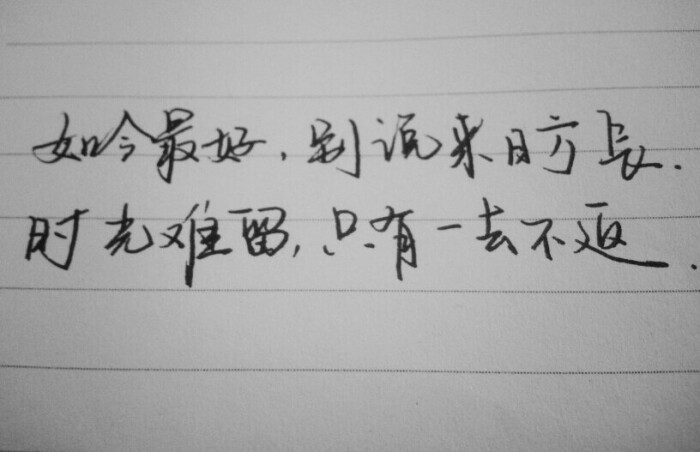 如今最好，别说来日方长．
时光难留，只有一去不返．